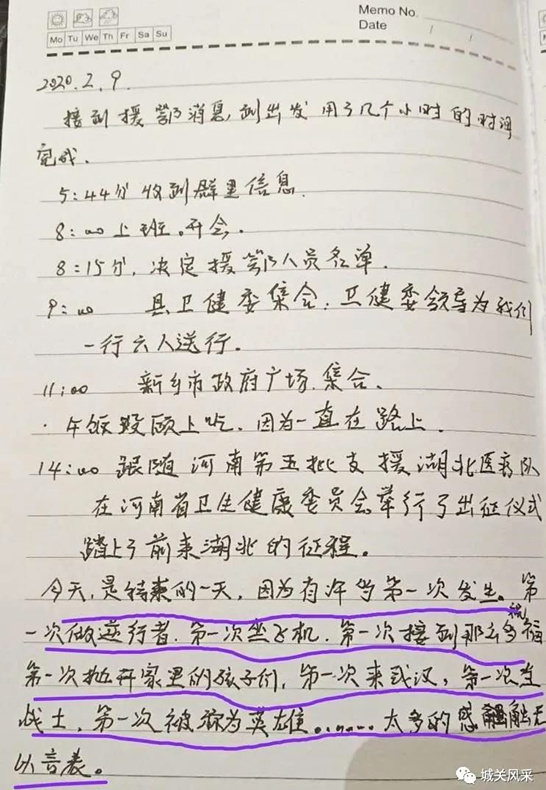 Memo No.
Date / /
Mo Tu We Th Fr Sa Su
2020.2.9.
接到援鄂消息,到出发用了几个小时的时间
完成.
5:44分 收到群里信息.
8:00上班.开会.
8:15分,决定援鄂人员名单.
9:00 县卫健委集合.卫健委领导为我们
一行六人送行.
11:00 新乡市政府广场.集合.
午饭没顾上吃.因为一直在路上.
14:00 跟随河南第五批支援湖北医疗队
在河南省卫生健康委员会举行了出征仪式
踏上了前来湖北的征程。
今天,是特殊的一天,因为有许多第一次发生。第
一次做逆行者.第一次坐飞机.第一次接到那么多祝福
第一次抛开家里的孩子们,第一次来武汉,第一次当
战士.第一次被称为英雄。…… 太多的感触无
以言表。
城关风采